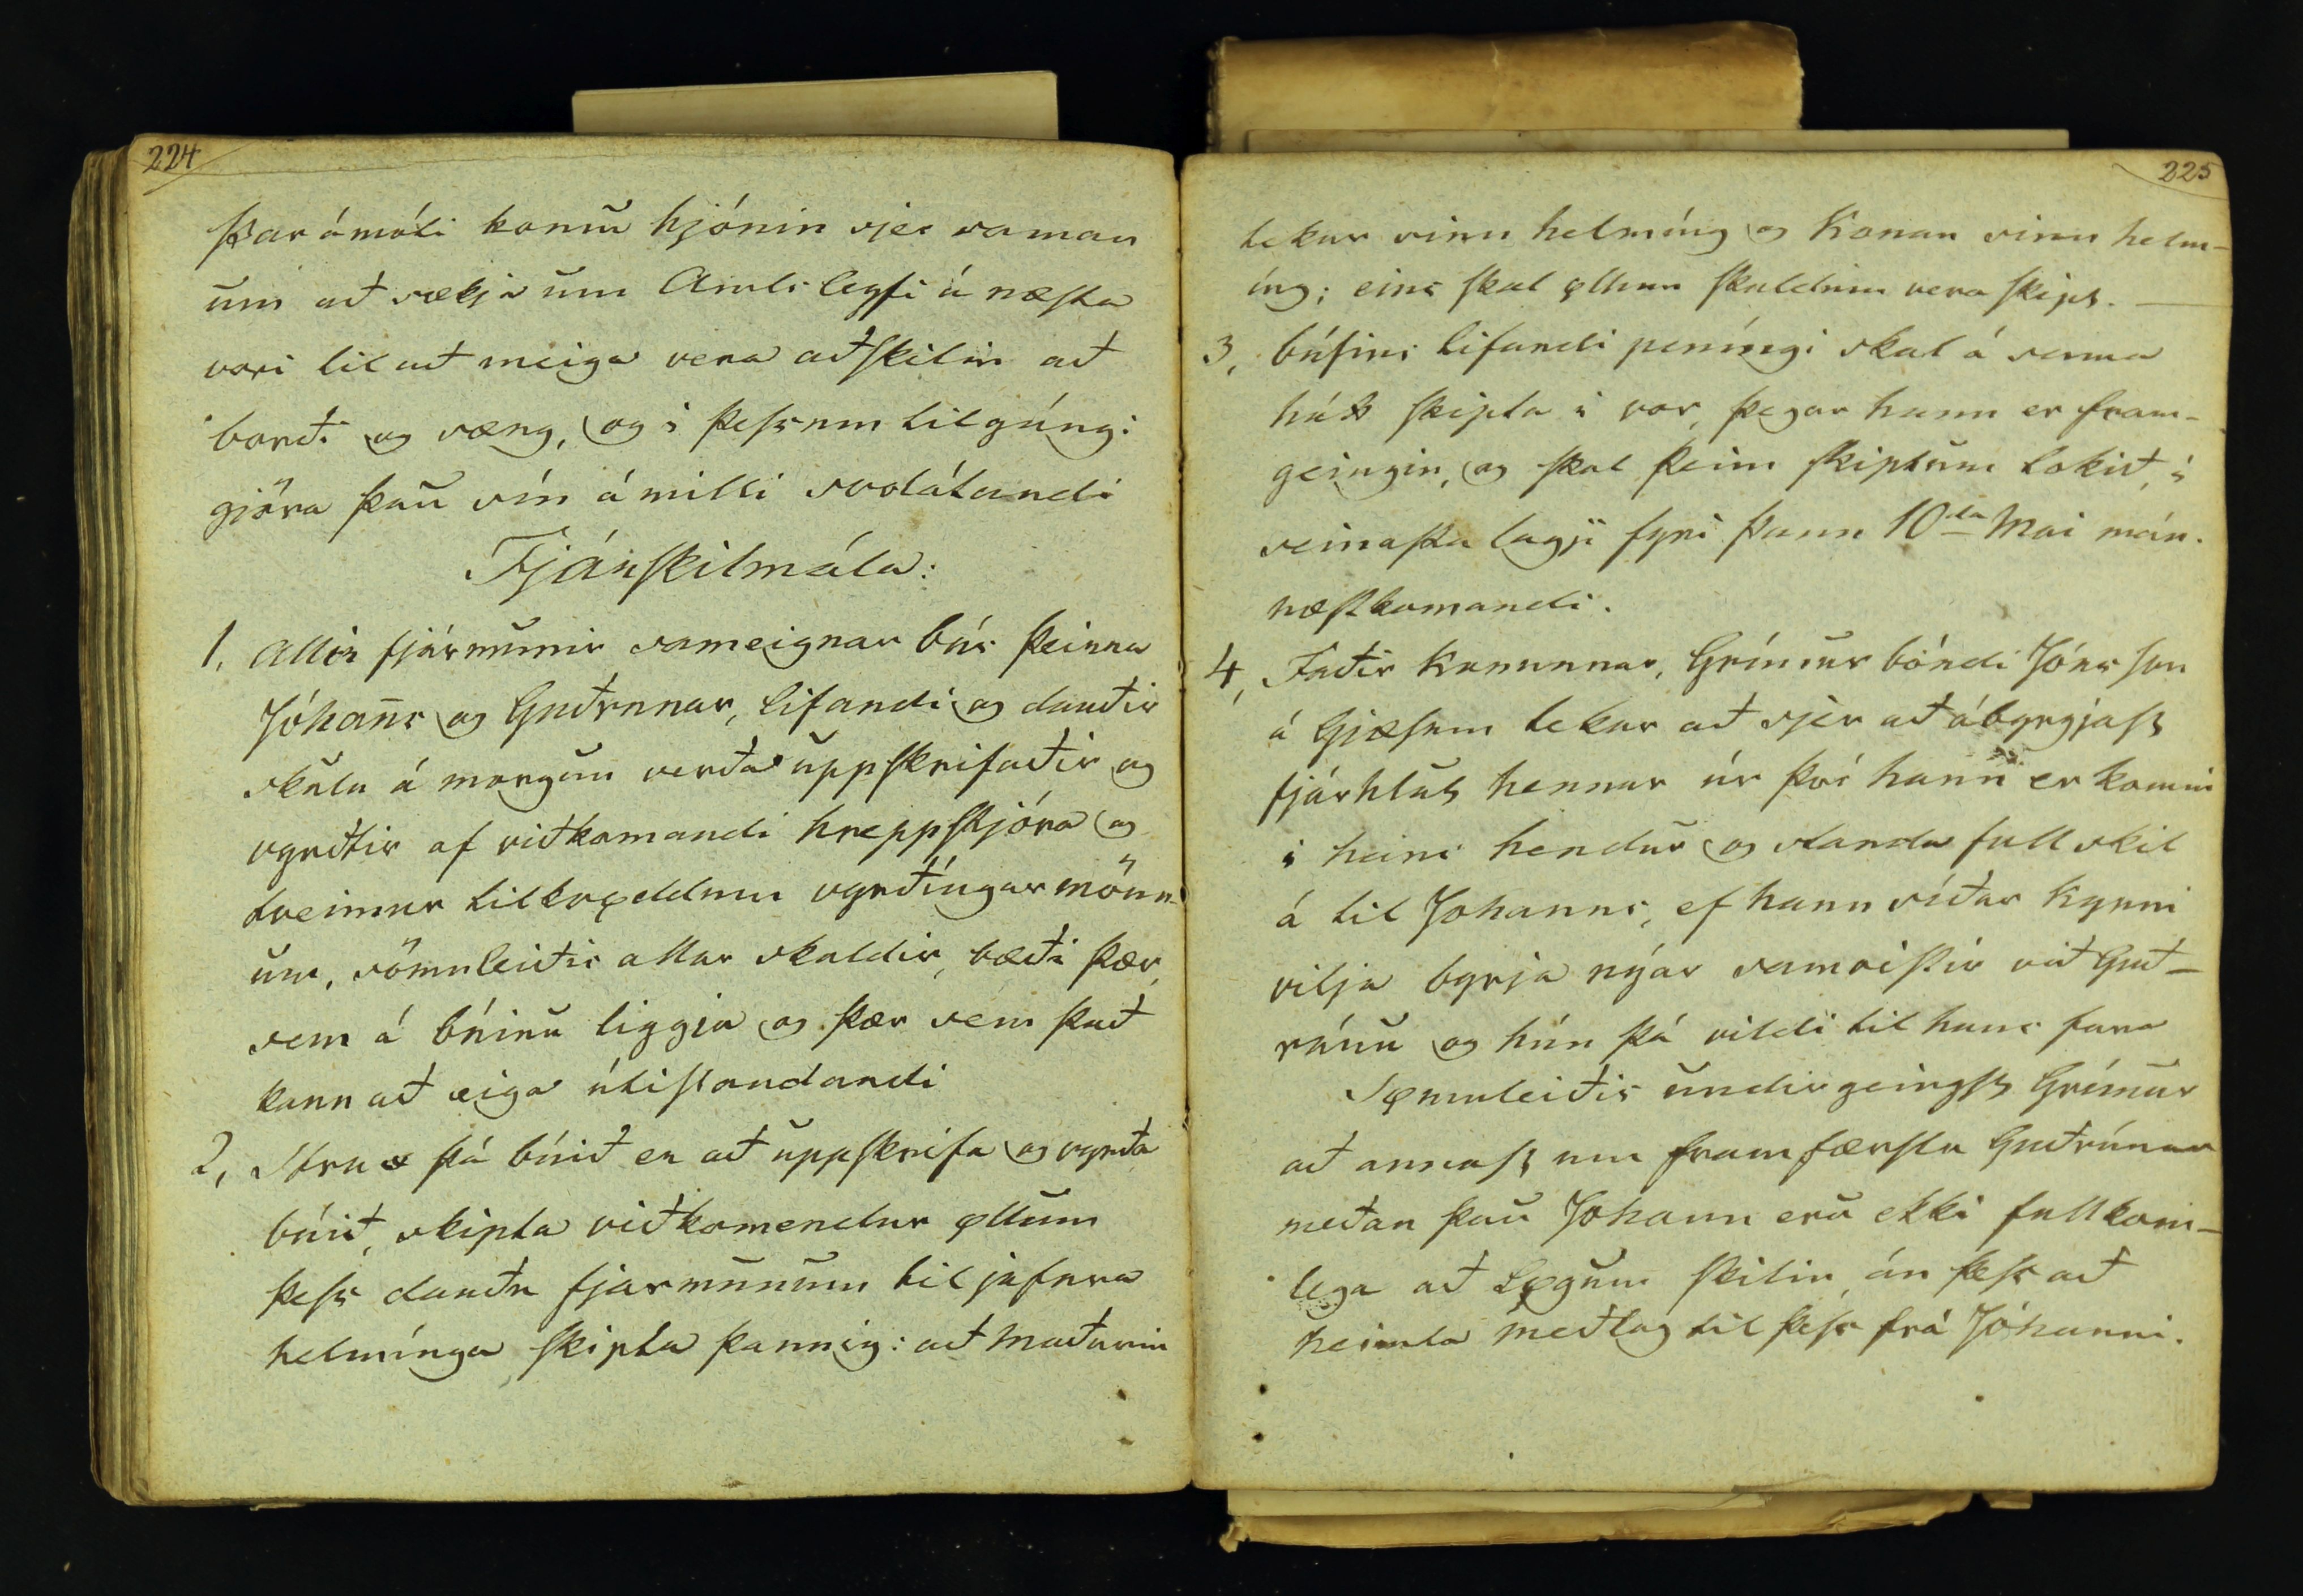 224
Þar ámóti komu hjónin sjer saman
um að sækja um Amtsleyfi á næsta
vori til að meiga vera aðskilin að
borði og sæng, og í þessum tilgángi
gjöra þau sín ámilli svolátandi
Fjárskilmála:
1, Allir fjármunir sameignar bús þeirra
Jóhans og Guðrúnar, lifandi og dauðir
skulu á morgun verða uppskrifaðir og
vyrðtir af viðkomandi hreppstjóra og
tveimur tilkvøddum vyrðíngarmönn-
um, sömuleiðis allar skuldir, bæði þær,
sem á búinu liggja og þær sem það
kann að eiga útistandandi
2, Strax þá búið er að uppskrifa og vyrða
búið, skipta viðkomendur øllum
þess dauðu fjarmunum til jafnra
helmínga skipta þannig: að Maðurin
225
tekur sinn helmíng og Konan sinn helm-
íng; eins skal øllum skuldum vera skipt.
3, búsins lifandi peníngi skal á sama
hátt skipta í vor, þegar hann er fram-
geingin, og skal þeim skiptum lokið, í
seinasta lagji fyri þann 10da Mai mán.
næstkomandi.
4, Faðir Konunnar, Grímur bóndi Jónsson
á Gjæsum tekur að sjér að ábyrgjast
fjárhlut hennar úr því hann er komin
í hans hendur og standa full skil
á til Johanns, ef hann síðar kynni
vilja byrja nýar samvistir við Guð-
rúnu og hún þá vildi til hans fara
Sømuleiðis undirgeingst Grímur
að annast um framfærslu Guðrúnar
meðan þau Johann eru ekki fullkom-
lega að Løgum skilin, án þess að
heimta meðlag til þess frá Jóhanni.